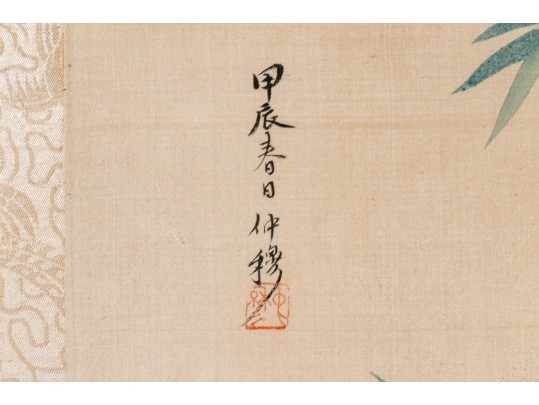 甲辰春日仲穆